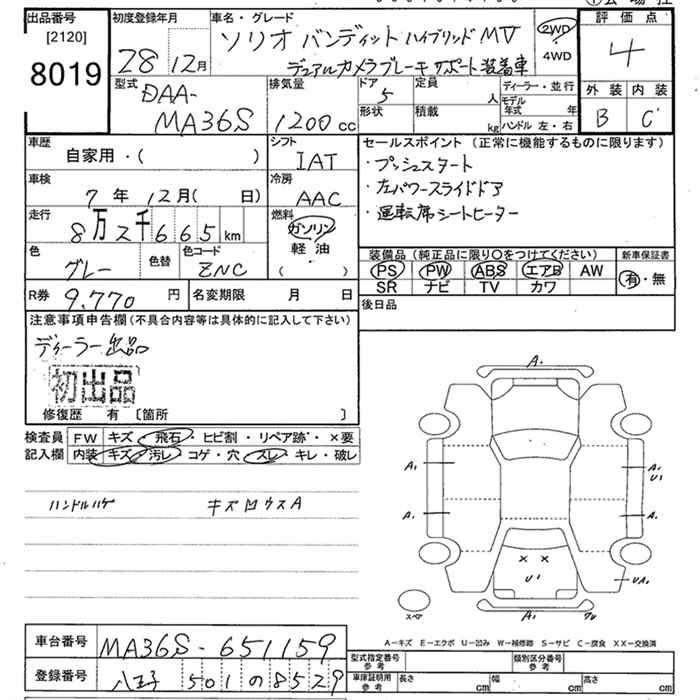 出品番号 [2120] 8019
初度登録年月 28 12月
車名・グレード ソリオ バンディット ハイブリッド MV
デュアルカメラブレーキサポート装着車
2WD・4WD
評価点 4
外装 内装
B C
型式 DAA-MA36S
排気量 1200cc
ドア 5
形状
定員 人
積載 kg
ディーラー・並行
モデル年式 年
ハンドル 左・右
車歴 自家用・( )
シフト IAT
車検 7年 12月( 日)
冷房 AAC
走行 8万2千665km
燃料 ガソリン・軽油・( )
色 グレー
色替
色コード ZNC
R券 9,770円
名変期限 月 日
セールスポイント(正常に機能するものに限ります)
・プッシュスタート
・左パワースライドドア
・運転席シートヒーター
装備品(純正品に限り○をつけてください)
PS PW ABS エアB AW
SR ナビ TV カワ
新車保証書
有・無
後日品
注意事項申告欄(不具合内容等は具体的に記入して下さい)
ディーラー出品
初出品
修復歴 有 〔箇所 〕
検査員記入欄
FW キズ・飛石・ヒビ割・リペア跡・×要
内装 キズ・汚レ・コゲ・穴・スレ・キレ・破レ
ハンドルハゲ キズ凹ウスA
A1
A1 A1 U1
A1 A1
× ×
U1 UA1
A1
スペア
A-キズ E-エクボ U-凹み W-補修跡 S-サビ C-腐食 XX-交換済
車台番号 MA36S-651159
登録番号 八王子 501 の 8529
型式指定番号参考
類別区分番号参考
車庫証明用参考 長さ cm 幅 cm 高さ cm